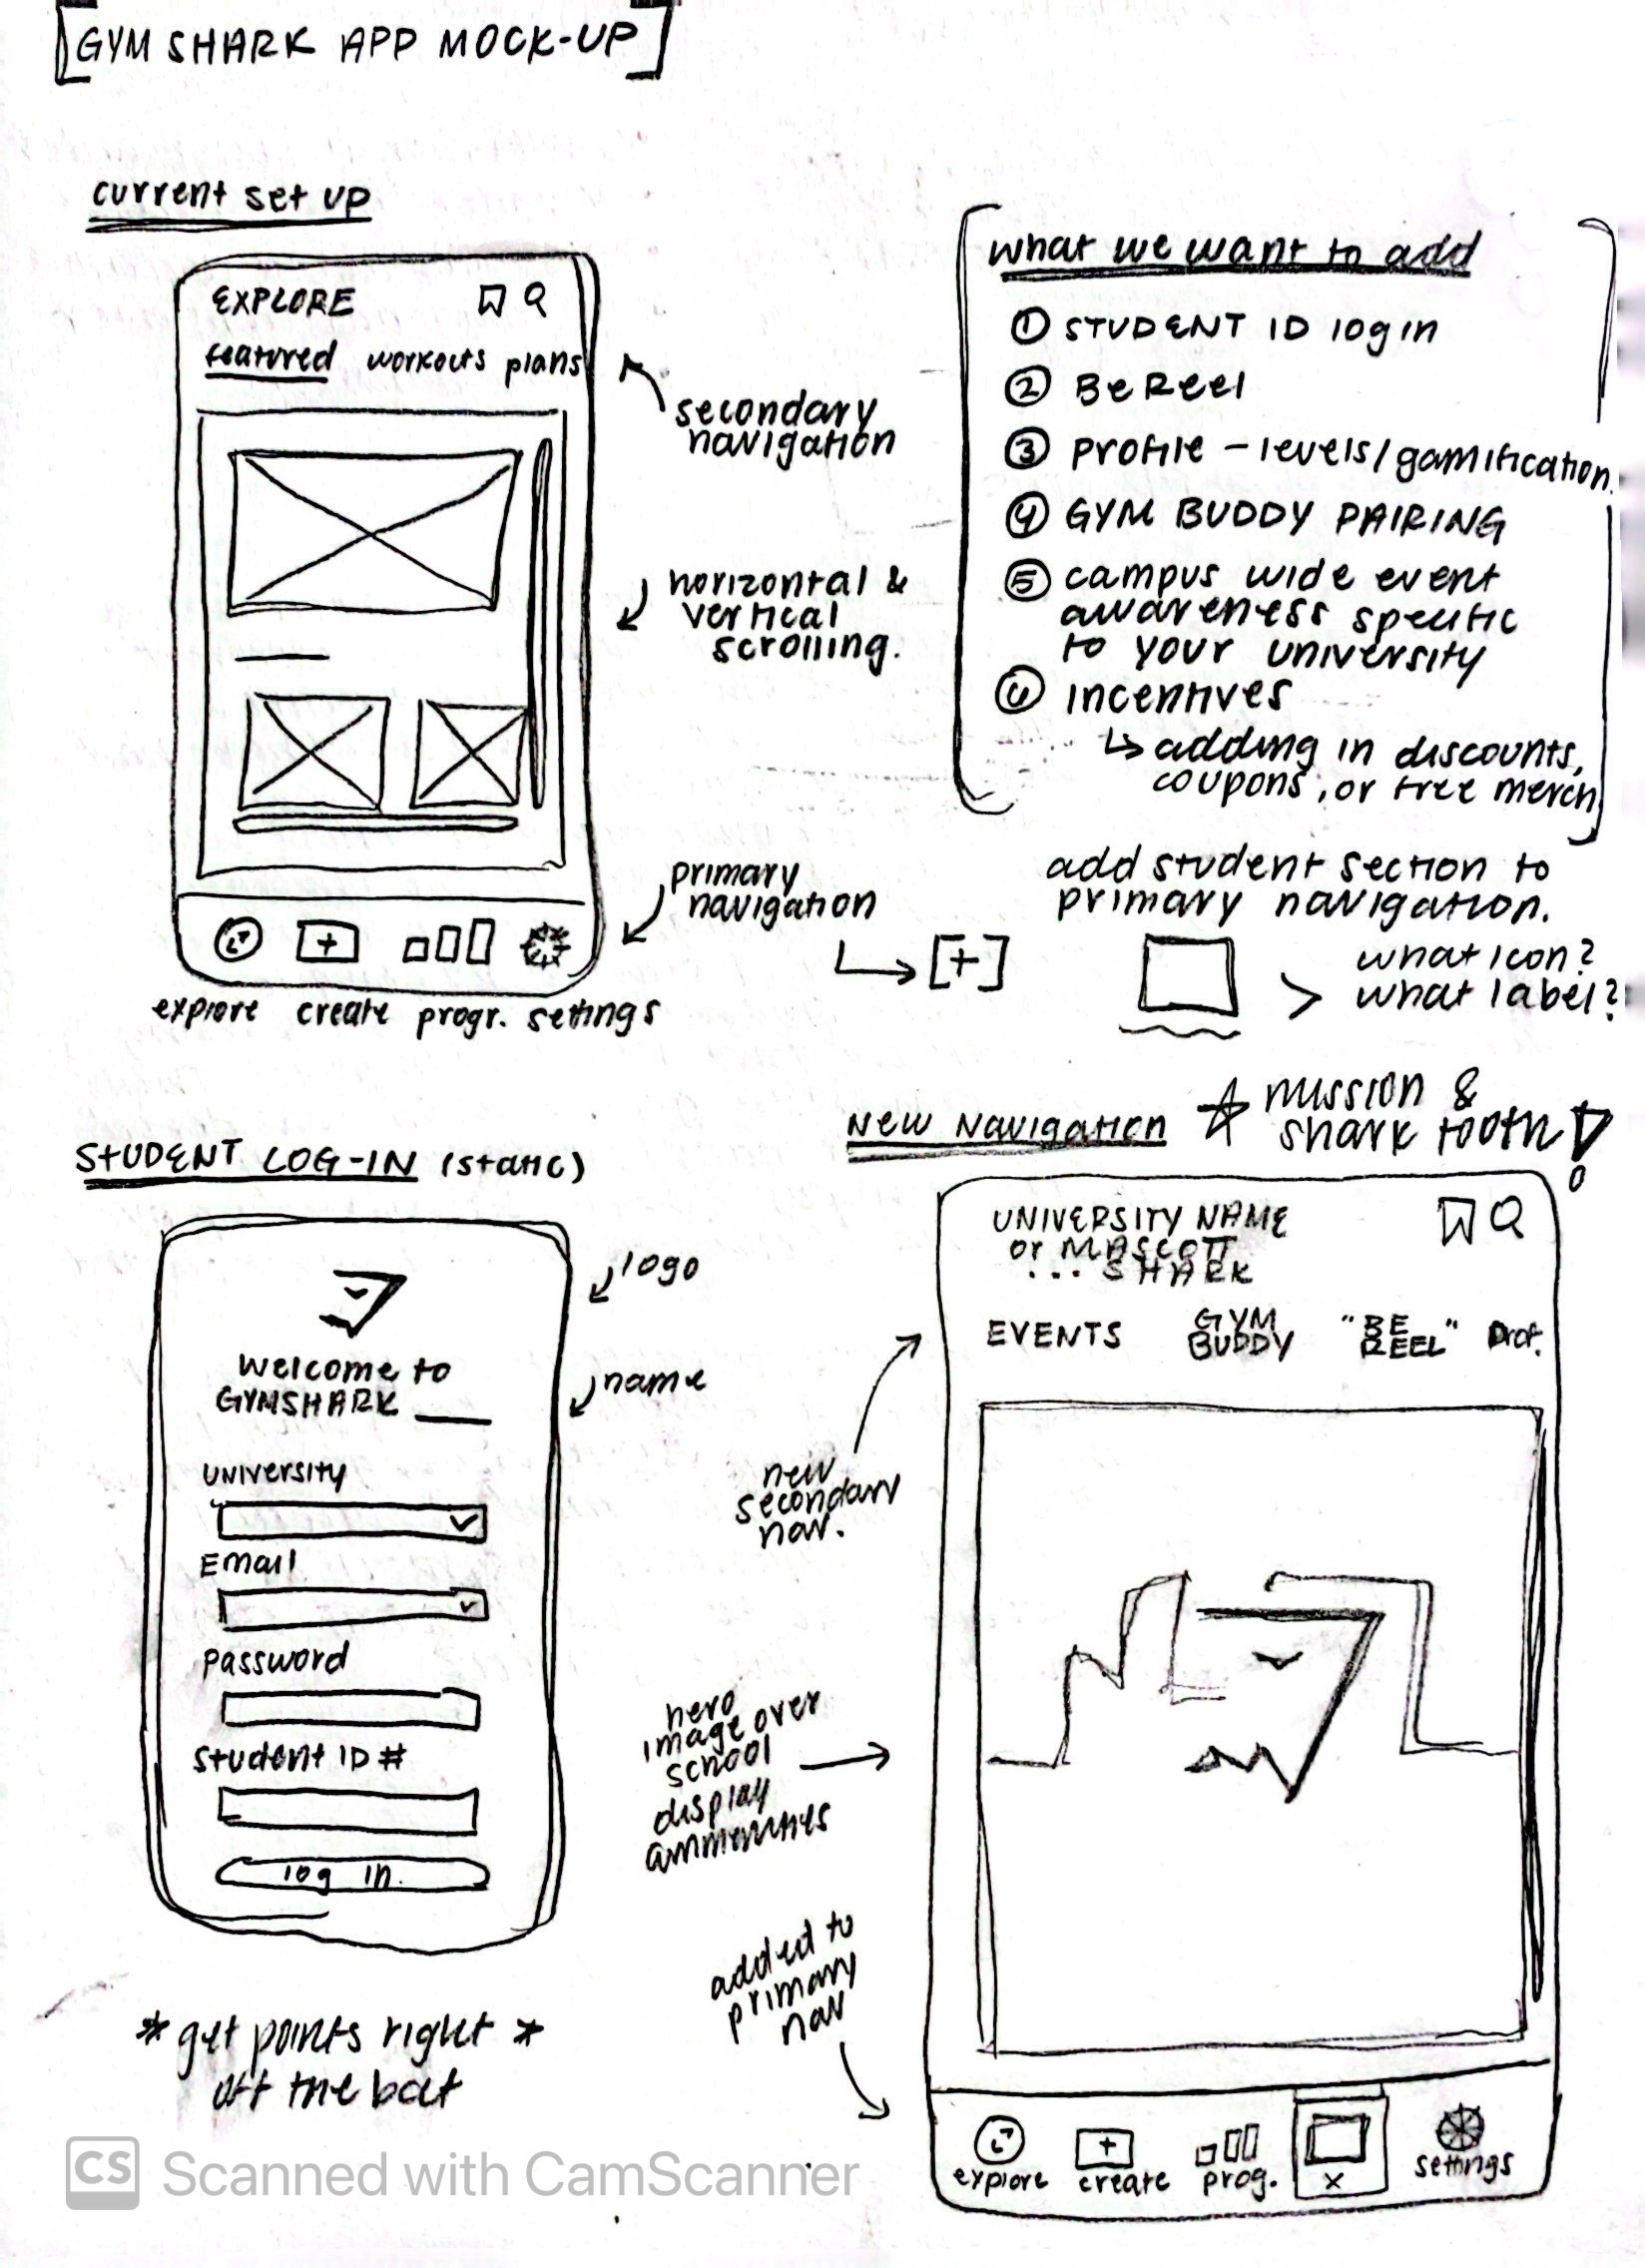 [GYM SHARK APP MOCK-UP]
current set up
EXPLORE
featured workouts plans
secondary
navigation
horizontal &
vertical
scrolling.
primary
navigation
[+]
explore create progr. settings
what we want to add
① STUDENT ID log in
② BeReel
③ Profile – levels/gamification.
④ GYM BUDDY PAIRING
⑤ campus wide event
awareness specific
to your university
⑥ incentives
↳ adding in discounts,
coupons, or free merch
add student section to
primary navigation.
what icon?
what label?
STUDENT LOG-IN (static)
logo
welcome to
GYMSHARK ___
name
University
Email
Password
Student ID #
log in.
* get points right *
off the bat
New Navigation ☆ mission &
shark tooth!
UNIVERSITY NAME
or MASCOTT
... SHARK
EVENTS GYM BUDDY "BE REEL" Prof.
new
secondary
nav.
hero
image over
school
display
ammenities
added to
primary
nav
explore create prog. x settings
CS Scanned with CamScanner